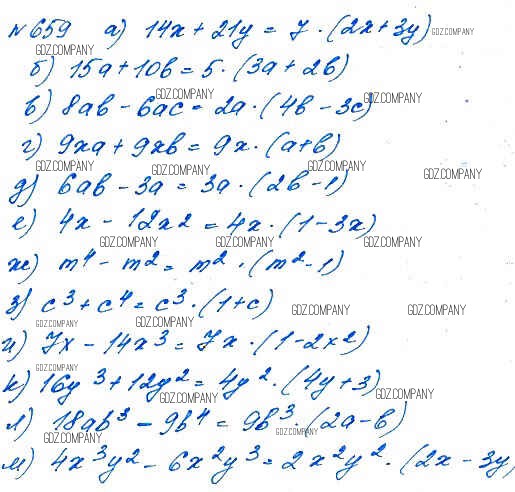 №659 а) 14x + 21y = 7 · (2x + 3y)
GDZ.COMPANY GDZ.COMPANY
б) 15a + 10b = 5 · (3a + 2b)
GDZ.COMPANY GDZ.COMPANY
в) 8ab - 6ac = 2a · (4b - 3c)
GDZ.COMPANY
г) 9xa + 9xb = 9x · (a+b)
GDZ.COMPANY GDZ.COMPANY GDZ.COMPANY GDZ.COMPANY
д) 6ab - 3a = 3a · (2b - 1)
е) 4x - 12x² = 4x · (1 - 3x)
GDZ.COMPANY GDZ.COMPANY GDZ.COMPANY
ж) m⁴ - m² = m² · (m² - 1)
з) c³ + c⁴ = c³ · (1 + c)
GDZ.COMPANY GDZ.COMPANY GDZ.COMPANY GDZ.COMPANY
и) 7x - 14x³ = 7x · (1 - 2x²)
GDZ.COMPANY
к) 16y³ + 12y² = 4y² · (4y + 3)
GDZ.COMPANY GDZ.COMPANY
л) 18ab³ - 9b⁴ = 9b³ · (2a - b)
GDZ.COMPANY GDZ.COMPANY
м) 4x³y² - 6x²y³ = 2x²y² · (2x - 3y)